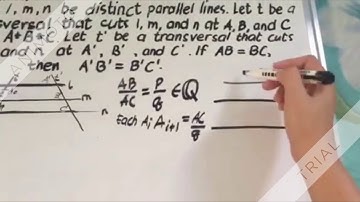 l, m, n be distinct parallel lines. Let t be a
versal that cuts l, m, and n at A, B, and C
A*B*C. Let t' be a transversal that cuts
and n at A', B', and C'. If AB = BC,
then A'B' = B'C'.
AB/AC = p/q ∈ ℚ
Each AᵢAᵢ₊₁ = AC/q
l
m
n
TRIAL